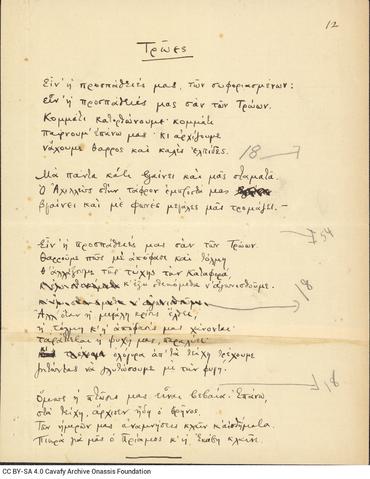 12
Τρῶες
Εἶν' ἡ προσπάθειές μας, τῶν συφοριασμένων·
εἶν' ἡ προσπάθειές μας σὰν τῶν Τρώων.
Κομμάτι κατορθώνουμε· κομμάτι
παίρνουμ' ἐπάνω μας· κι ἀρχίζουμε
νἄχουμε θάρρος καὶ καλὲς ἐλπίδες.
18
Μὰ πάντα κάτι βγαίνει καὶ μᾶς σταματᾶ.
Ὁ Ἀχιλλεὺς στὴν τάφρον ἐμπροστά μας
βγαίνει καὶ μὲ φωνὲς μεγάλες μᾶς τρομάζει.—
Εἶν' ἡ προσπάθειές μας σὰν τῶν Τρώων.
Θαρροῦμε πὼς μὲ ἀπόφασι καὶ τόλμη
θ' ἀλλάξουμε τῆς τύχης τὴν καταφορά,
κ' ἔξω στεκόμεθα ν' ἀγωνισθοῦμε.
18
Ἀλλ' ὅταν ἡ μεγάλη κρίσις ἔλθει,
ἡ τόλμη κ' ἡ ἀπόφασίς μας χάνονται·
ταράττεται ἡ ψυχή μας, παραλύει·
ὁλόγυρα ἀπ' τὰ τείχη τρέχουμε
ζητώντας νὰ γλυτώσουμε μὲ τὴν φυγή.
18
Ὅμως ἡ πτῶσις μας εἶναι βεβαία. Ἐπάνω,
στὰ τείχη, ἄρχισεν ἤδη ὁ θρῆνος.
Τῶν ἡμερῶν μας ἀναμνήσεις κλαῖν κ' αἰσθήματα.
Πικρὰ γιὰ μᾶς ὁ Πρίαμος κ' ἡ Ἑκάβη κλαῖνε.
CC BY-SA 4.0 Cavafy Archive Onassis Foundation